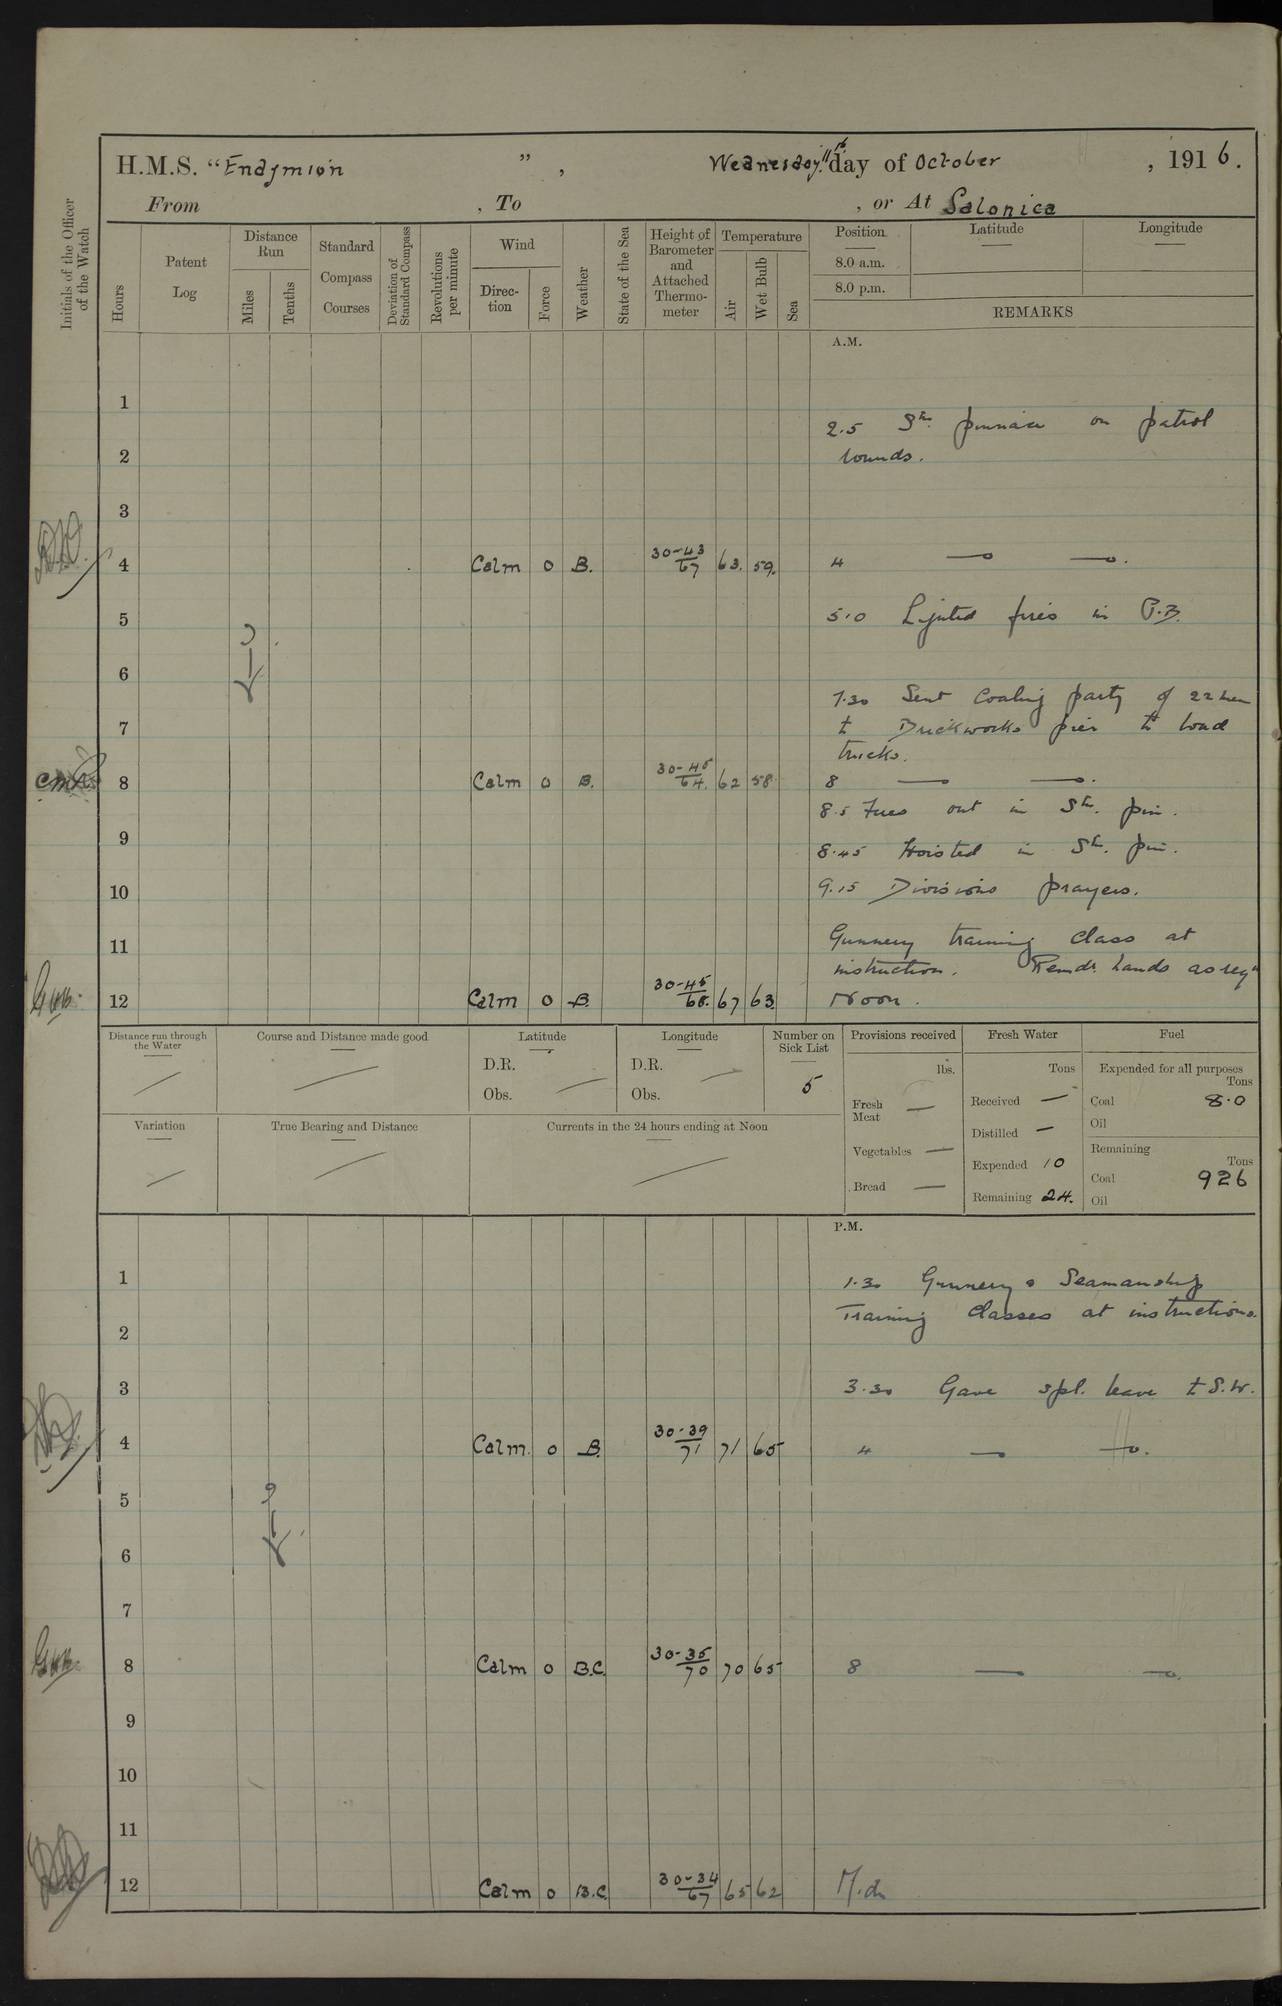 H.M.S. "Endymion", Wednesday 11th day of October, 1916.
From , To , or At Salonica
Initials of the Officer of the Watch
Hours
Patent Log
Distance Run
Miles
Tenths
Standard Compass Courses
Deviation of Standard Compass
Revolutions per minute
Wind
Direction
Force
Weather
State of the Sea
Height of Barometer and Attached Thermometer
Temperature
Air
Wet Bulb
Sea
Position
8.0 a.m.
8.0 p.m.
Latitude
Longitude
REMARKS
A.M.
1
2.5 Stm. pinnace on patrol
2
rounds.
3
4 Calm 0 B. 30-43/67 63. 59. 4
5
5.0 Lighted fires in P.B.
6
7.30 Sent Coaling party of 22 men
7
to Brickworks pier to load
trucks.
8 Calm 0 B. 30-45/64. 62 58 8
8.5 Fires out in Stm. pin.
9
8.45 Hoisted in Stm. pin.
10
9.15 Divisions prayers.
11
Gunnery training class at
instruction. Remdr. hands as reqd
12 Calm 0 B. 30-45/68. 67 63. Noon.
Distance run through the Water
Course and Distance made good
Latitude
D.R.
Obs.
Longitude
D.R.
Obs.
Number on Sick List
5
Provisions received
lbs.
Fresh Meat —
Vegetables —
Bread —
Fresh Water
Tons
Received —
Distilled —
Expended 10
Remaining 24.
Fuel
Expended for all purposes
Tons
Coal 8.0
Oil
Remaining
Tons
Coal 926
Oil
Variation
True Bearing and Distance
Currents in the 24 hours ending at Noon
P.M.
1
1.30 Gunnery & Seamanship
Training Classes at instructions.
2
3
3.30 Gave spl. leave to S.W.
4 Calm. 0 B. 30-39/71 71 65 4
5
6
7
8 Calm 0 B.C. 30-35/70 70 65 8
9
10
11
12 Calm 0 B.C. 30-34/67 65 62 M.dn